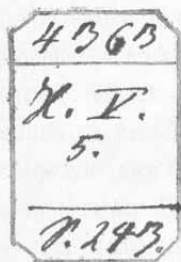 4363
H. V.
5.
P. 243.